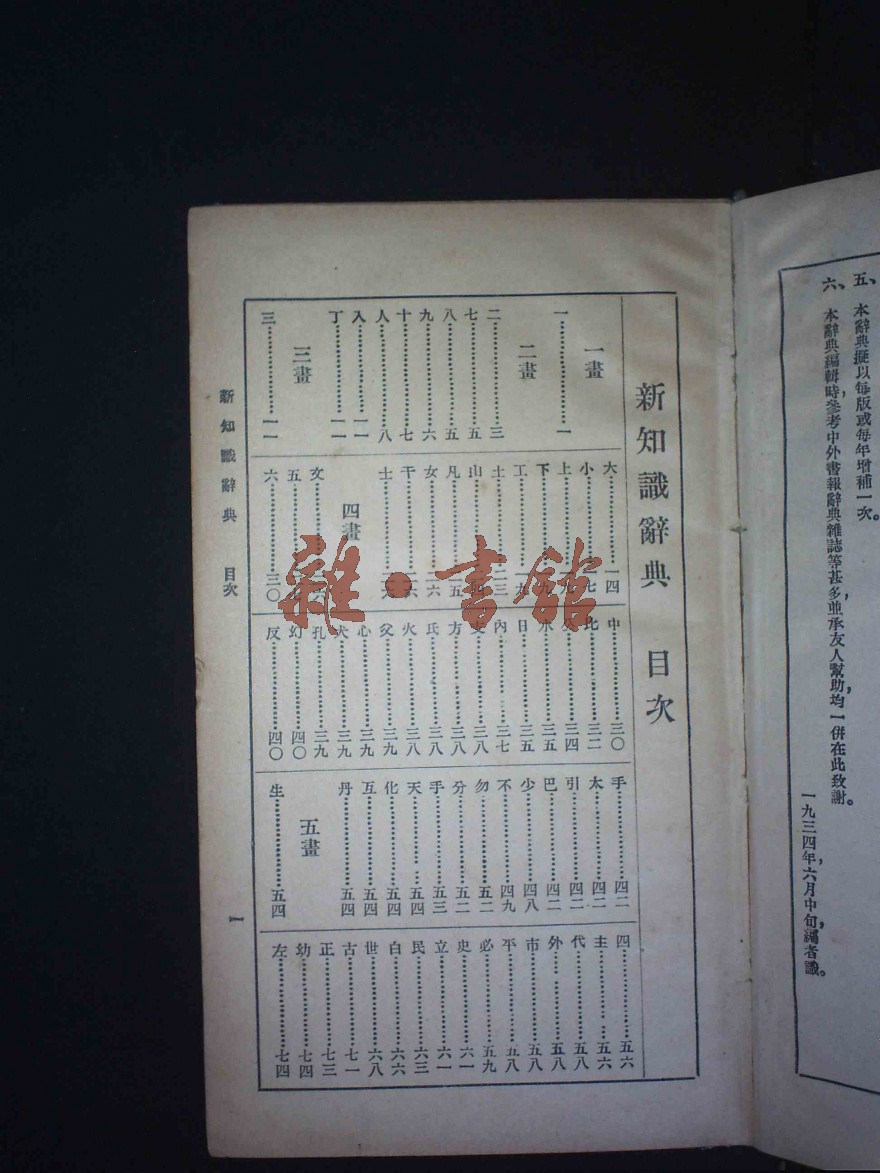 五、本辭典擬以每版或每年增補一次。
六、本辭典編輯時，參考中外書報辭典雜誌等甚多，並承友人幫助，均一併在此致謝。
一九三四年，六月中旬，編者識。
新知識辭典 目次
一畫
一……一
二畫
二……三
七……五
八……五
九……六
十……七
人……八
入……一一
丁……一一
三畫
三……一一
大……一四
小
上
下
工
土
山
凡
女
干
士
四畫
文
五
六……三〇
中……三〇
比……三二
公……三四
木……三五
日……三五
內……三七
支……三八
方……三八
氏……三八
火……三八
父……三九
心……三九
犬……三九
孔……三九
幻……四〇
反……四〇
手……四二
太……四二
引……四二
巴……四二
少……四八
不……四九
勿……五二
分……五二
手……五三
天……五四
化……五四
互……五四
丹……五四
五畫
生……五四
四……五六
主……五六
代……五八
外……五八
市……五八
平……五八
必……五九
史……六一
立……六一
民……六三
白……六六
世……六八
古……七一
正……七三
幼……七四
左……七四
新知識辭典 目次
一
雜·書館